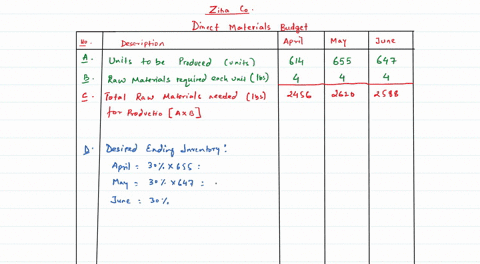 Ziha Co.
Direct Materials Budget
No. Description April May June
A. Units to be Produced (units) 614 655 647
B. Raw Materials required each unit (lbs) 4 4 4
C. Total Raw Materials needed (lbs) 2456 2620 2588
for Productio [AxB]
D. Desired Ending Inventory:
April = 30% x 655 =
May = 30% x 647 =
June = 30%